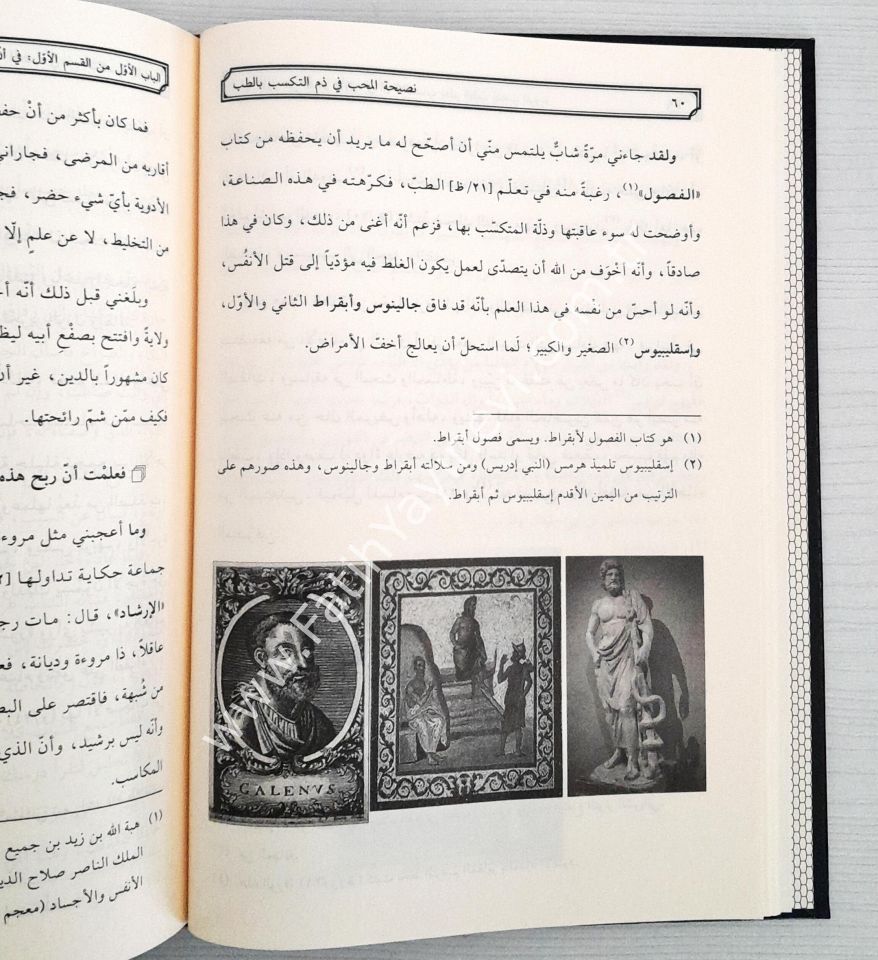 نصيحة المحب في ذم التكسب بالطب
٦٠
ولقد جاءني مرّةً شابٌّ يلتمس منّي أن أصحّح له ما يريد أن يحفظه من كتاب
«الفصول»(١)، رغبةً منه في تعلّم [٢١/ظ] الطبّ، فكرّهته في هذه الصناعة،
وأوضحت له سوء عاقبتها وذلّة المتكسّب بها، فزعم أنّه أغنى من ذلك، وكان في هذا
صادقاً، وأنّه أخْوَف من الله أن يتصدّى لعمل يكون الغلط فيه مؤدّياً إلى قتل الأنفُس،
وأنّه لو أحسّ من نفْسه في هذا العلم بأنّه قد فاق جالينوس وأبقراط الثاني والأوّل،
وإسقليبيوس(٢) الصغير والكبير؛ لَما استحلّ أن يعالج أخفّ الأمراض.
(١) هو كتاب الفصول لأبقراط. ويسمى فصول أبقراط.
(٢) إسقليبيوس تلميذ هرمس (النبي إدريس) ومن سلالته أبقراط وجالينوس، وهذه صورهم على
الترتيب من اليمين الأقدم إسقليبيوس ثم أبقراط.
GALENVS
www.FatihYayinevi.com
الباب الأوّل من القسم الأوّل: في
فما كان بأكثر من أنْ
أقاربه من المرضى،
الأدوية بأيّ شيء حضر،
من التخليط، لا عن علمٍ إلّا
وبلَغني قبل ذلك أنّه
ولايةً وافتتح بصفْعِ أبيه
كان مشهوراً بالدين، غير
فكيف ممّن شمّ رائحتها.
فعلمْت أنّ ربح هذه
وما أعجبني مثل
جماعة حكاية تداولها
«الإرشاد»، قال: مات
عاقلاً، ذا مروءة وديانة،
من شُبهة، فاقتصر على
وأنّه ليس برشيد، وأنّ الذي
المكاسب.
(١) هبة الله بن زيد بن جميع
الملك الناصر صلاح
الأنفس والأجساد (معجم